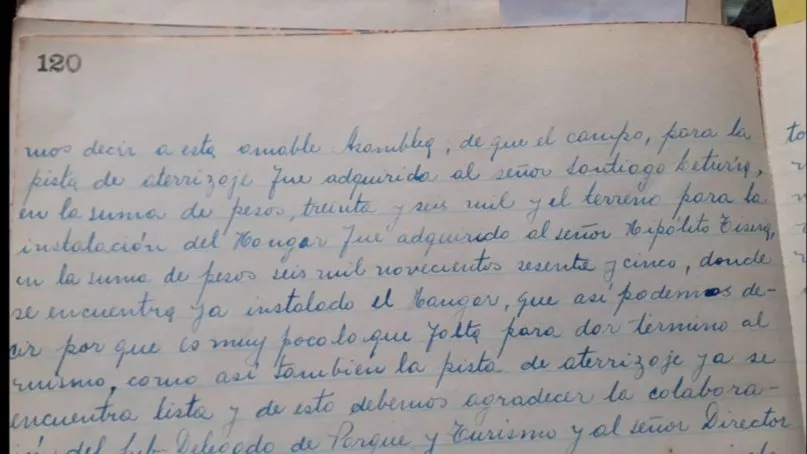 120
mos decir a esta amable Asamblea, de que el campo, para la
pista de aterrizaje fue adquirida al señor Santiago Leturia,
en la suma de pesos, treinta y seis mil y el terreno para la
instalación del Hangar fué adquerido al señor Hipólito
en la suma de pesos seis mil novecientos sesenta y cinco, donde
se encuentra ya instalado el Hangar, que así podemos de-
cir por que es muy poco lo que falta para dar termino al
mismo, como así tambien la pista de aterrizaje ya se
encuentra lista y de esto debemos agradecer la colabora-
del Sub-Delegado de Parque y Turismo y al señor Director